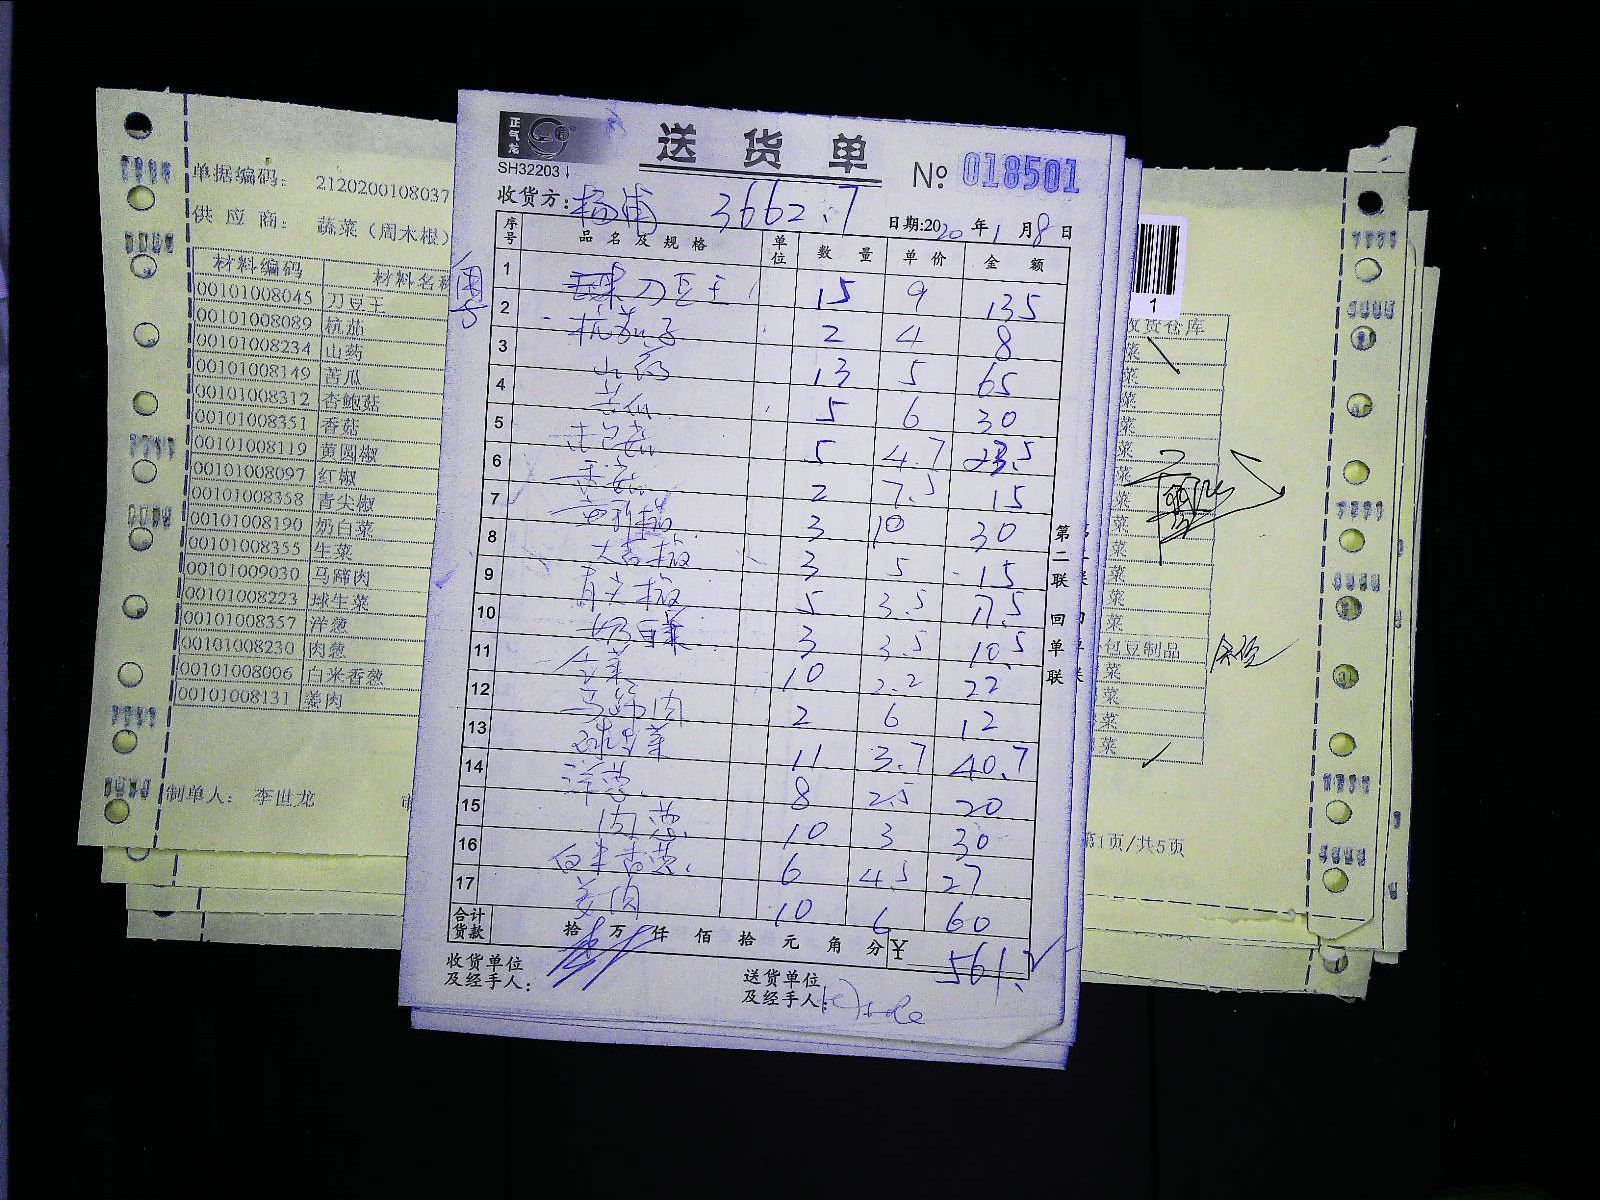 正气龙
SH32203
送货单
№ 018501
收货方: 杨浦 3662.7
日期:2020年1月8日
序号 品名及规格 单位 数量 单价 金额
1 刀豆王 15 9 135
2 杭茄子 2 4 8
3 山药 13 5 65
4 苦瓜 5 6 30
5 杏包菇 5 4.7 23.5
6 香菇 2 7.5 15
7 黄园椒 3 10 30
8 大红椒 3 5 15
9 青尖椒 5 3.5 17.5
10 奶白菜 3 3.5 10.5
11 生菜 10 2.2 22
12 马蹄肉 2 6 12
13 球生菜 11 3.7 40.7
14 洋葱 8 2.5 20
15 肉葱 10 3 30
16 白米香葱 6 4.5 27
17 姜肉 10 6 60
合计货款 拾 万 仟 佰 拾 元 角 分 ¥ 561.2
收货单位及经手人:
送货单位及经手人:
第二联 回单联
单据编码: 2120200108037
供应商: 蔬菜(周木根)
材料编码 材料名称
00101008045 刀豆王
00101008089 杭茄
00101008234 山药
00101008149 苦瓜
00101008312 杏鲍菇
00101008351 香菇
00101008119 黄圆椒
00101008097 红椒
00101008358 青尖椒
00101008190 奶白菜
00101008355 生菜
00101009030 马蹄肉
00101008223 球生菜
00101008357 洋葱
00101008230 肉葱
00101008006 白米香葱
00101008131 姜肉
制单人: 李世龙
1
收货仓库
菜
菜
菜
菜
菜
菜
菜
菜
菜
菜
菜
菜
包豆制品
菜
菜
菜
菜
第1页/共5页